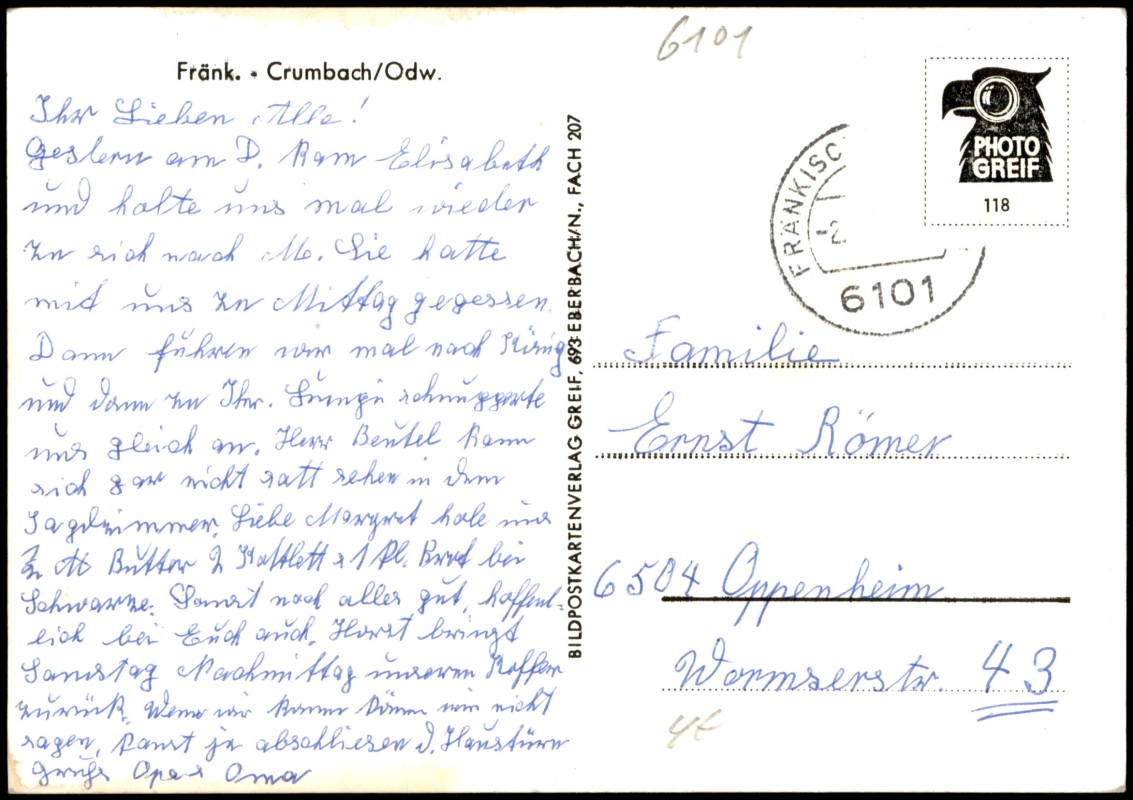 6101
Fränk. • Crumbach/Odw.
Ihr Lieben Alle!
Gestern am D. kam Elisabeth
und holte uns mal wieder
zu sich nach M. Sie hatte
mit uns zu Mittag gegessen.
Dann fuhren wir mal nach König
und dann zu Ihr. schnupperte
uns gleich an. Herr Beutel kann
sich gar nicht satt sehen in dem
Jagdzimmer. Liebe Margret hole uns
Butter 2 1 Brot bei
Schwarze. Sonst noch alles gut, hoffent-
lich bei Euch auch. Horst bringt
Samstag Nachmittag unseren Koffer
zurück. Wenn wir nicht
sagen, ja abschliesen d. Haustürn
Opa Oma
BILDPOSTKARTENVERLAG GREIF, 693 EBERBACH/N., FACH 207
PHOTO
GREIF
118
FRÄNKISC
-2.
6101
Familie
Ernst Römer
6504 Oppenheim
Wormserstr. 43